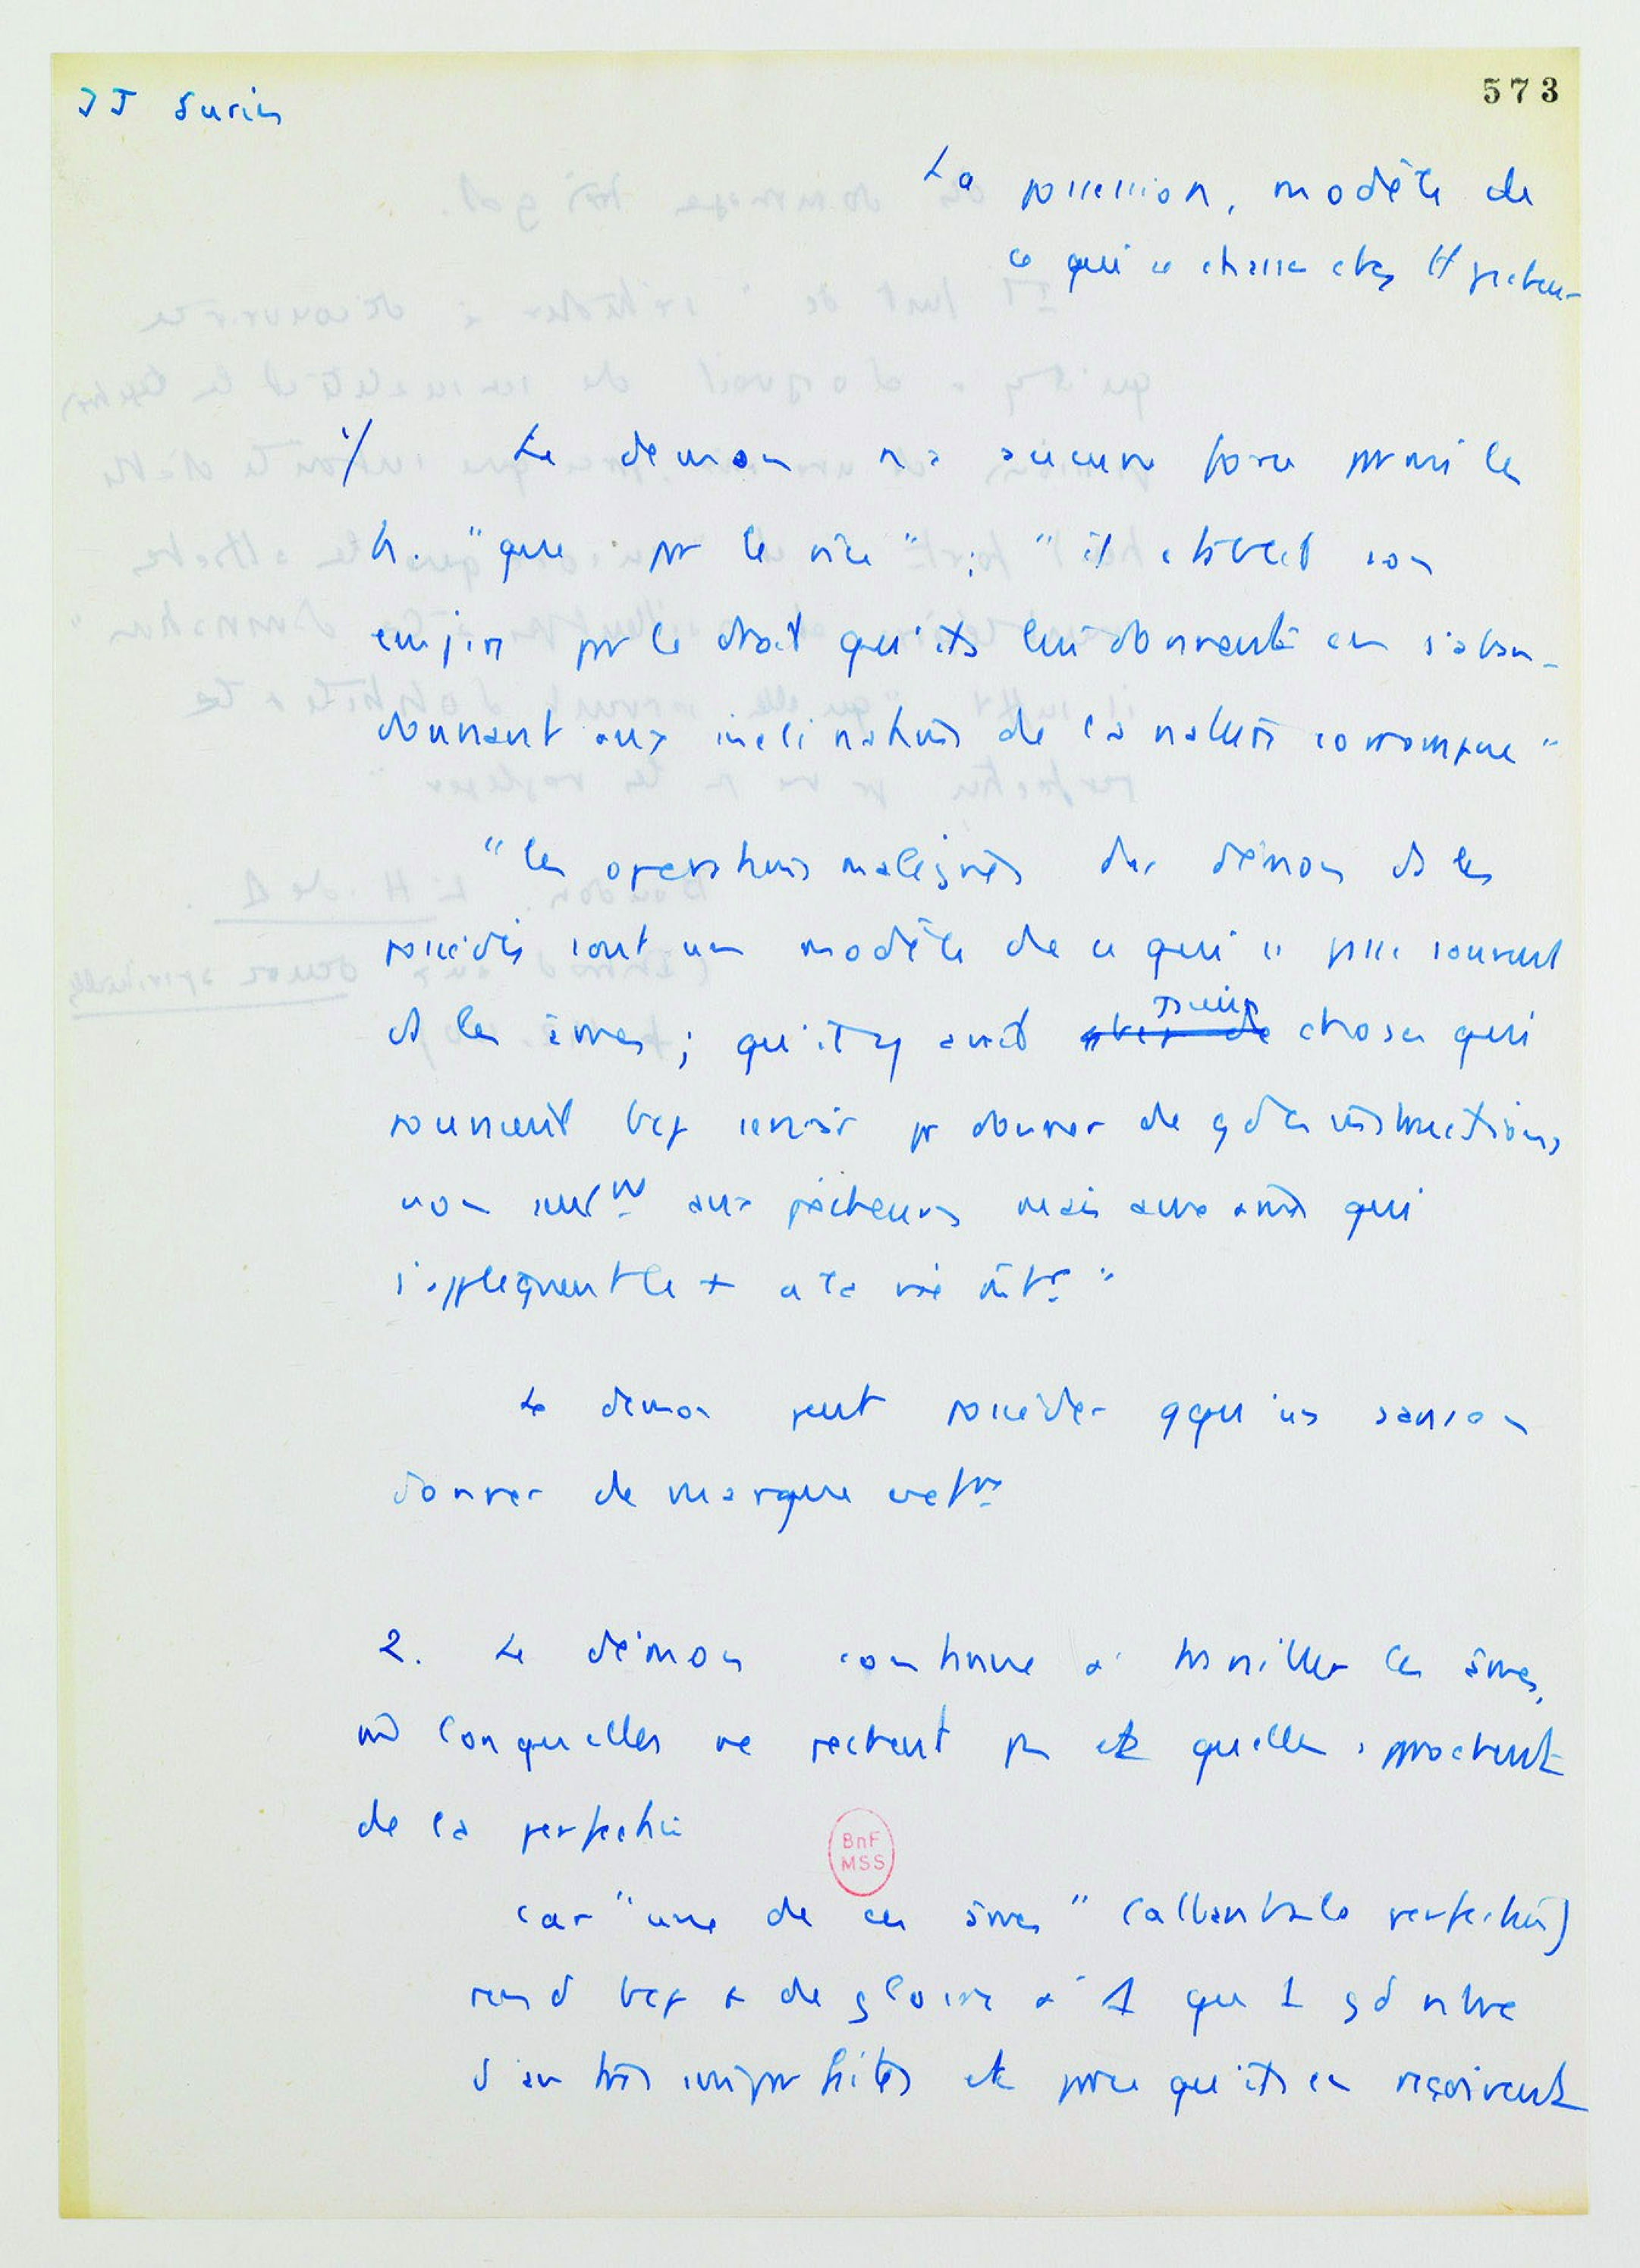 JJ Surin
573
La possession, modèle de
ce qui se chasse chez H pécheur
1/ Le demon n'a aucune force parmi les
h. "que pr le vice" ; "il établit son
empire pr le droit qu'ils lui donnent en s'aban-
donnant aux inclinations de la nature corrompue"
"les operations malignes du démon ds les
possédés sont un modèle de ce qui se passe souvent
ds les âmes ; qu'il y avait choses qui
pouvaient bcp servir pr donner de gdes instructions
non seult aux pécheurs mais aux âmes qui
s'appliquent le + a la vie intre"
Le demon peut posséder qqu'un sans en
donner de marque extre
2. Le démon continue a travailler les âmes,
m̂ lorsqu'elles ne pechent pas et qu'elles approchent
de la perfection
car "une de ces âmes" (allant vers la perfection)
rend bcp + de gloire à Δ qu'1 gd nbre
d'autres imparfaites et parce qu'ils en reçoivent
BnF
MSS